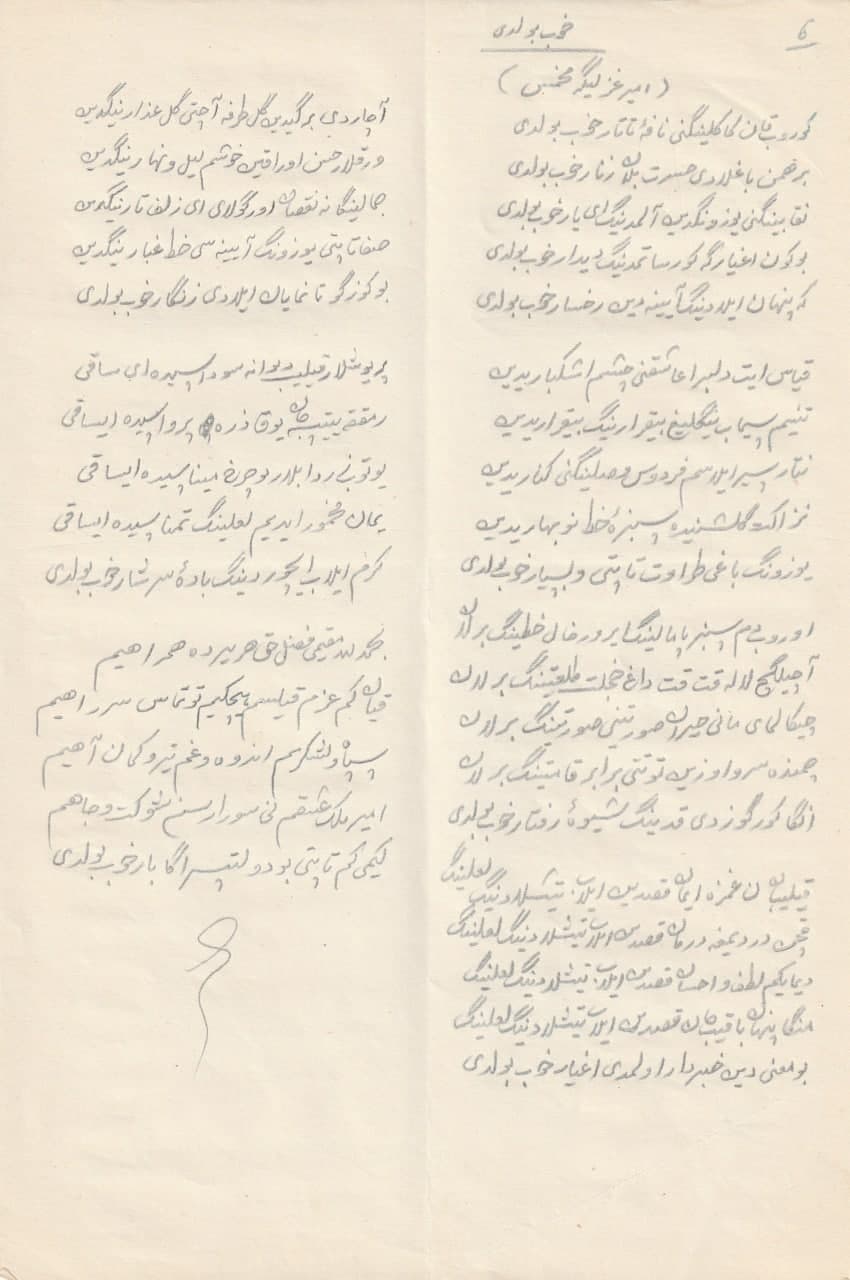 6
خوب بولدی
(امیر غزلیگه مخمس)
کوروب قان کاکلینگنی نافهٔ تاتار خوب بولدی
برهمن باغلادی حسرت بلان زنار خوب بولدی
نقابینگنی یوزونگدین آلمدنگ ای یار خوب بولدی
بوکون اغیارگه کورساتمدنگ دیدار خوب بولدی
که پنهان ایلادینگ آیینه دین رخسار خوب بولدی
قیاس ایت دلبرا عاشقنی چشم اشکباریدین
تنیم سیماب ینگلیغ بیقرارینگ بیقراریدین
نتار سیر ایلاسم فردوس وصلینگنی کناریدین
نزاکت گلشنیده سبزهٔ خط نوبهاریدین
یوزونگ باغی طراوت تاپتی و بسیار خوب بولدی
اوروب دم سنبر پامالینگ ایرور خال خطینگ برلان
آچیلگچ لاله قت قت داغ خجلت طلعتینگ برلان
چیکالمای مانی حیران صورتینی صورتینگ برلان
چمنده سرو اوزین توتتی برابر قامتینگ برلان
انگا کورگوزدی قدینگ شیوهٔ رفتار خوب بولدی
قیلیبان غمزه ایمان قصدین ایلاب تیشلادینگ لعلینگ
قچن دردیمغه درمان قصدین ایلاب تیشلادینگ لعلینگ
دیمایکیم لطف و احسان قصدین ایلاب تیشلادینگ لعلینگ
منگا پنهان باقیب جان قصدین ایلاب تیشلادینگ لعلینگ
بو معنی دین خبردار اولمدی اغیار خوب بولدی
آچاردی برگیدین گل طرفه آچتی گل عذارینگدین
ورقلار حسن اوراقین خوشم لیل و نهارینگدین
جمالینگا نه نقصان اورگولای ای زلف تارینگدین
صفا تاپتی یوزونگ آیینه سی خط غبارینگدین
بو کوزگو تا نمایان ایلادی زنگار خوب بولدی
پریوشلار قیلیب دیوانه سودا سیده ای ساقی
رمقغه ییتیب جان یوقا ذره پروا سیده ایساقی
یوتوبی ردا بلار بو چرخ مینا سیده ایساقی
یمان مخمور ایدیم لعلینگ تمنا سیده ایساقی
کرم ایلاب ایچوردینگ بادهٔ سرشار خوب بولدی
بحمدلله مقیمی فضل حق هر یرده همراهیم
قیان کم عزم قیلسم هیچکیم توتماس سر راهیم
سپاه و لشکریم اندوه و غم تیر و کمان آهیم
امیر ملک عشقم نی سورارسن شوکت و جاهیم
لیکی کم تاپتی بو دولت سراگا بار خوب بولدی